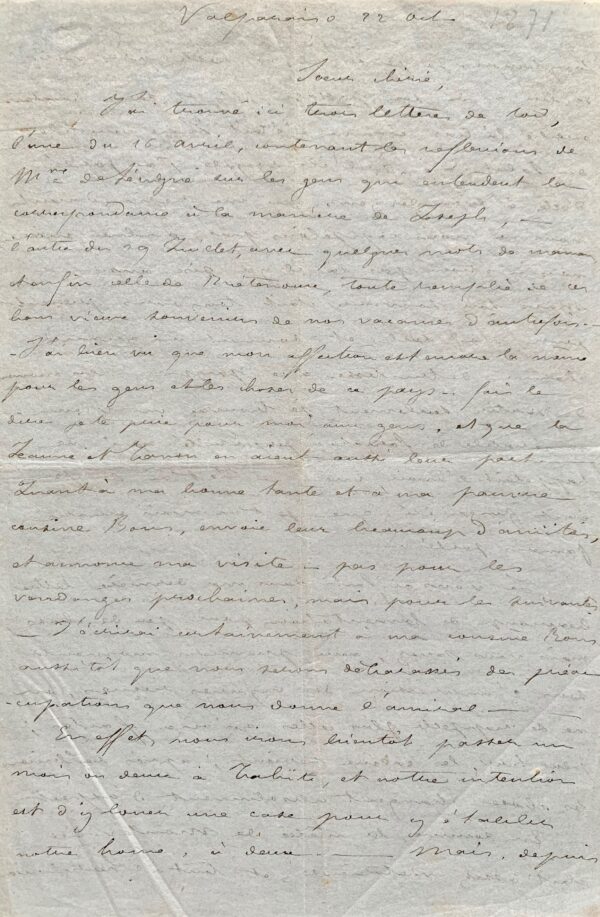 Valparaiso 22 Oct 1871
Sœur chérie,
J'ai trouvé ici trois lettres de toi,
l'une du 16 avril, contenant les réflexions de
Mme de Sévigné sur les gens qui entendent la
correspondance à la manière de Joseph, —
l'autre du 29 Juillet, avec quelques mots de maman
et enfin celle de Bretenoux, toute remplie de ces
bons vieux souvenirs de nos vacances d'autrefois —
- J'ai bien vu que mon affection est encore la même
pour les gens et les choses de ce pays — fais le
dire je te prie pour moi, aux gens, et que la
Jeanne et en aient aussi leur part
Quant à ma bonne tante et à ma pauvre
cousine Bonis, envoie leur beaucoup d'amitiés,
et annonce ma visite — pas pour les
vendanges prochaines, mais pour les suivantes
— J'écrirai certainement à ma cousine Bonis
aussitôt que nous serons débarassés des préoc
-cupations que nous donne l'amiral —
En effet, nous irons bientôt passer un
mois ou deux à Tahiti, et notre intention
est d'y louer une case pour y établir
notre home, à deux — Mais, depuis